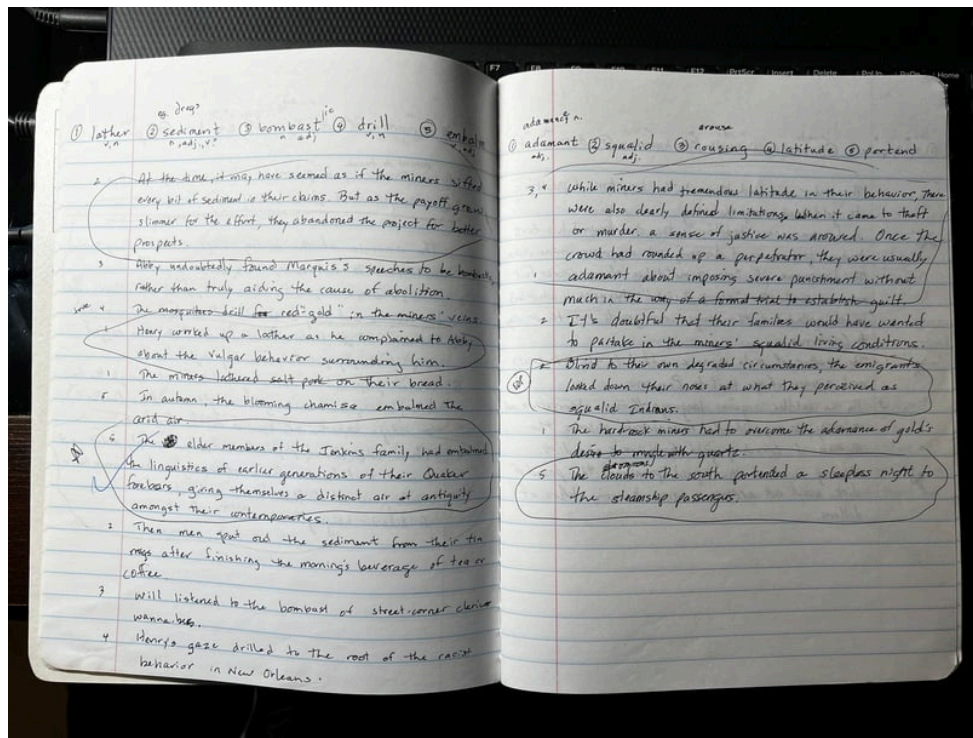 eg. dregs
① lather ② sediment ③ bombast ic ④ drill ⑤ embalm
v, n n, adj., v. n adj v, n v, adj
2 At the time, it may have seemed as if the miners sifted
every bit of sediment in their claims. But as the payoff grew
slimmer for the effort, they abandoned the project for better
prospects.
3 Abby undoubtedly found Marquis's speeches to be bombastic
rather than truly aiding the cause of abolition.
4 The mosquitoes drill for red "gold" in the miners' veins.
1 Henry worked up a lather as he complained to Abby
about the vulgar behavior surrounding him.
1 The miners lathered salt pork on their bread.
5 In autumn, the blooming chamise embalmed the
arid air.
5 The elder members of the Jenkins family had embalmed
the linguistics of earlier generations of their Quaker
forebears, giving themselves a distinct air of antiquity
amongst their contemporaries.
2 Then men spat out the sediment from their tin
mugs after finishing the morning's beverage of tea or
coffee.
3 Will listened to the bombast of street-corner clerics
wanna-bes.
4 Henry's gaze drilled to the root of the racist
behavior in New Orleans.
adamancy n. arouse
① adamant ② squalid ③ rousing ④ latitude ⑤ portend
adj. adj.
3, 4 While miners had tremendous latitude in their behavior, there
were also clearly defined limitations. When it came to theft
or murder, a sense of justice was aroused. Once the
crowd had rounded up a perpetrator, they were usually
1 adamant about imposing severe punishment without
much in the way of a formal trial to establish guilt.
2 It's doubtful that their families would have wanted
to partake in the miners' squalid living conditions.
2 Blind to their own degraded circumstances, the emigrants
looked down their noses at what they perceived as
squalid Indians.
1 The hardrock miners had to overcome the adamance of gold's
desire to mingle with quartz.
5 The clouds to the south portended a sleepless night to
the steamship passengers.
F7 F8 F9 F10 F11 F12 PrtScr Insert Delete PgUp PgDn Home